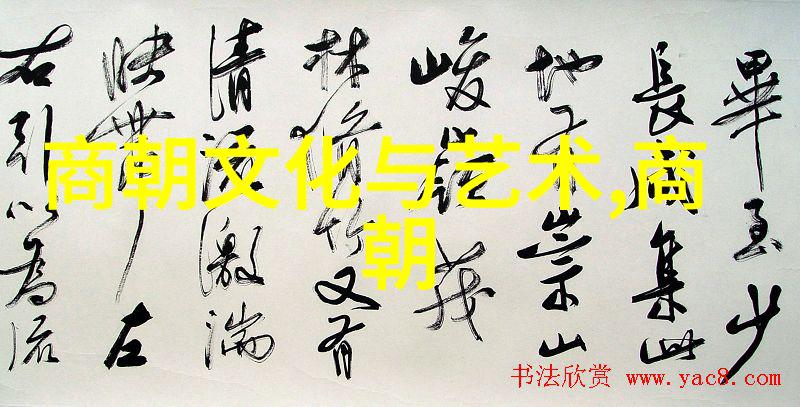 畢至少
長咸集此
地有崇山
峻領茂
林脩竹又有
清流激湍
映帶左
右引以為流
商朝文化与艺术,商
朝
书法欣赏 www.yac8.com